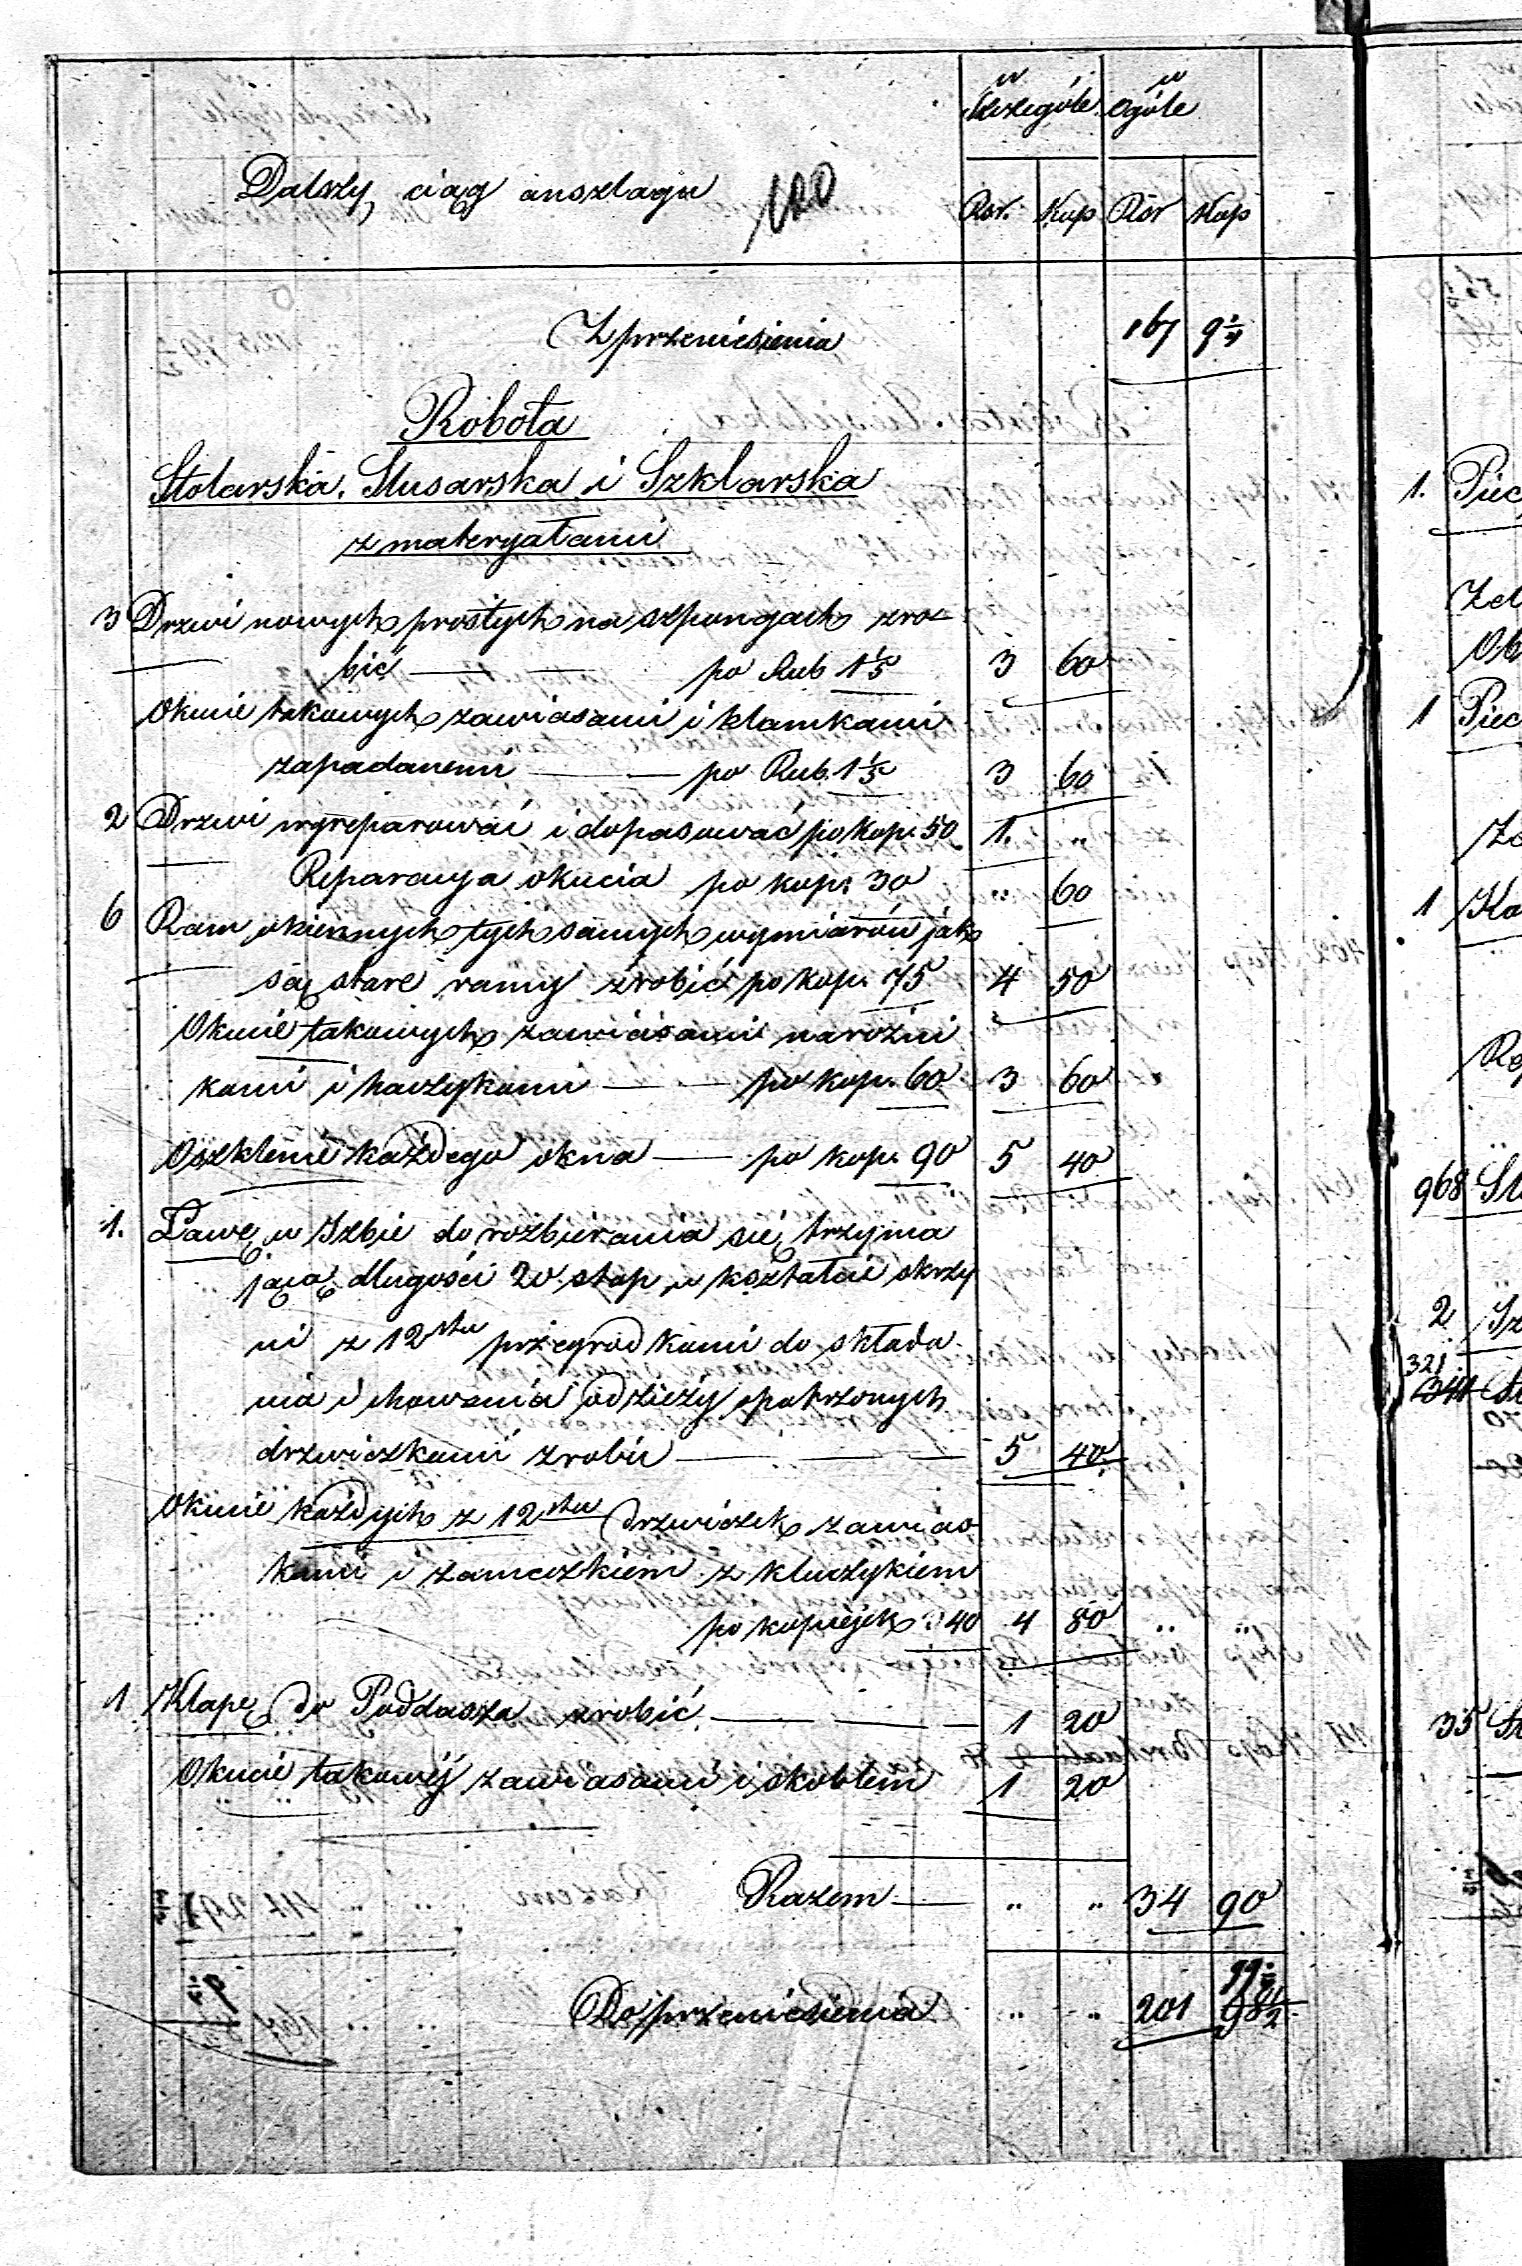 w Szczególe w Ogóle
Dalszy ciąg anszlagu
Rsr. Kop Rsr Kop
Z przeniesienia 167 9
Robota
Stolarska, Slusarska i Szklarska
z materyałami
3 Drzwi nowych prostych na szpongach zro-
bić — po Rub 1 1/5 3 60
Okucie takowych zawiasami i klamkami
zapadanemi — po Rub. 1 1/5 3 60
2 Drzwi wyreparować i dopasować po Kop. 50 1. "
Reparacya okucia po kop. 30 " 60
6 Ram okiennych tych samych wymiarów jak
są stare ramy zrobić po kop. 75 4 50
Okucie takowych zawiasami narożni
kami i haczykami — po kop. 60 3 60
Oszklenie każdego okna — po kop. 90 5 40
1. Ławę w Izbie do rozbierania się trzyma
jącą długości 20 stop w kształcie skrzy
ni z 12stu przegrodkami do składa
nia i chowania odzieży opatrzonych
drzwiczkami zrobić — 5 40
Okucie każdych z 12stu drzwiczek zawias
kami i zameczkiem z kluczykiem
po kopiejek 40 4 80 " "
1 Klapę do Poddasza zrobić — 1 20
Okucie takowéj zawiasami i skoblem 1 20
Razem — " " 34 90
99
Do przeniesienia " " 201 98 1/2
1. Piec
1 Piec
1
968
2
321
344
35